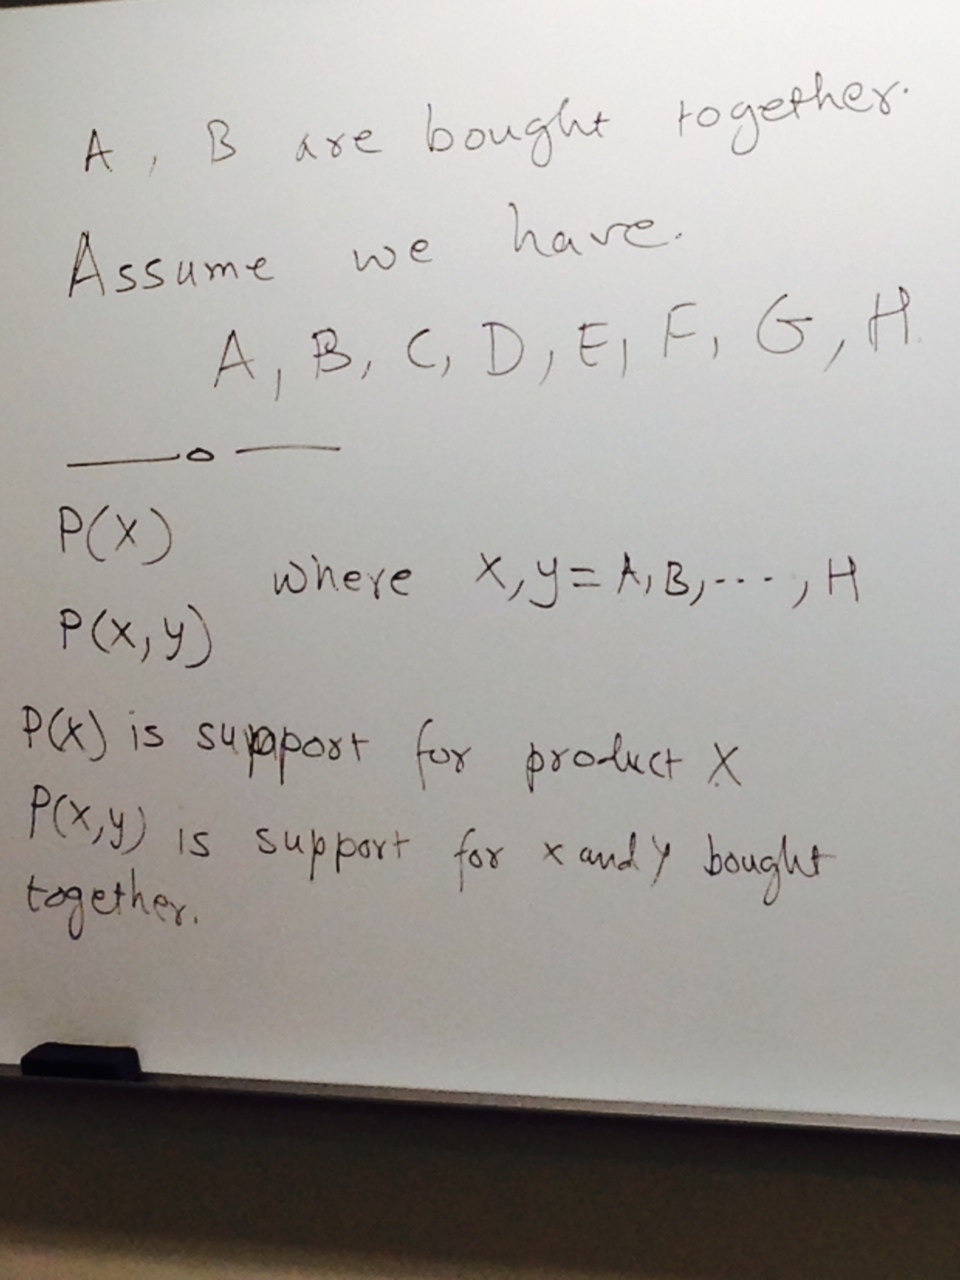 A, B are bought together.
Assume we have.
A, B, C, D, E, F, G, H.
P(X)
where X, y = A, B, ---, H
P(X, y)
P(X) is support for product X
P(X,y) is support for x and y bought
together.